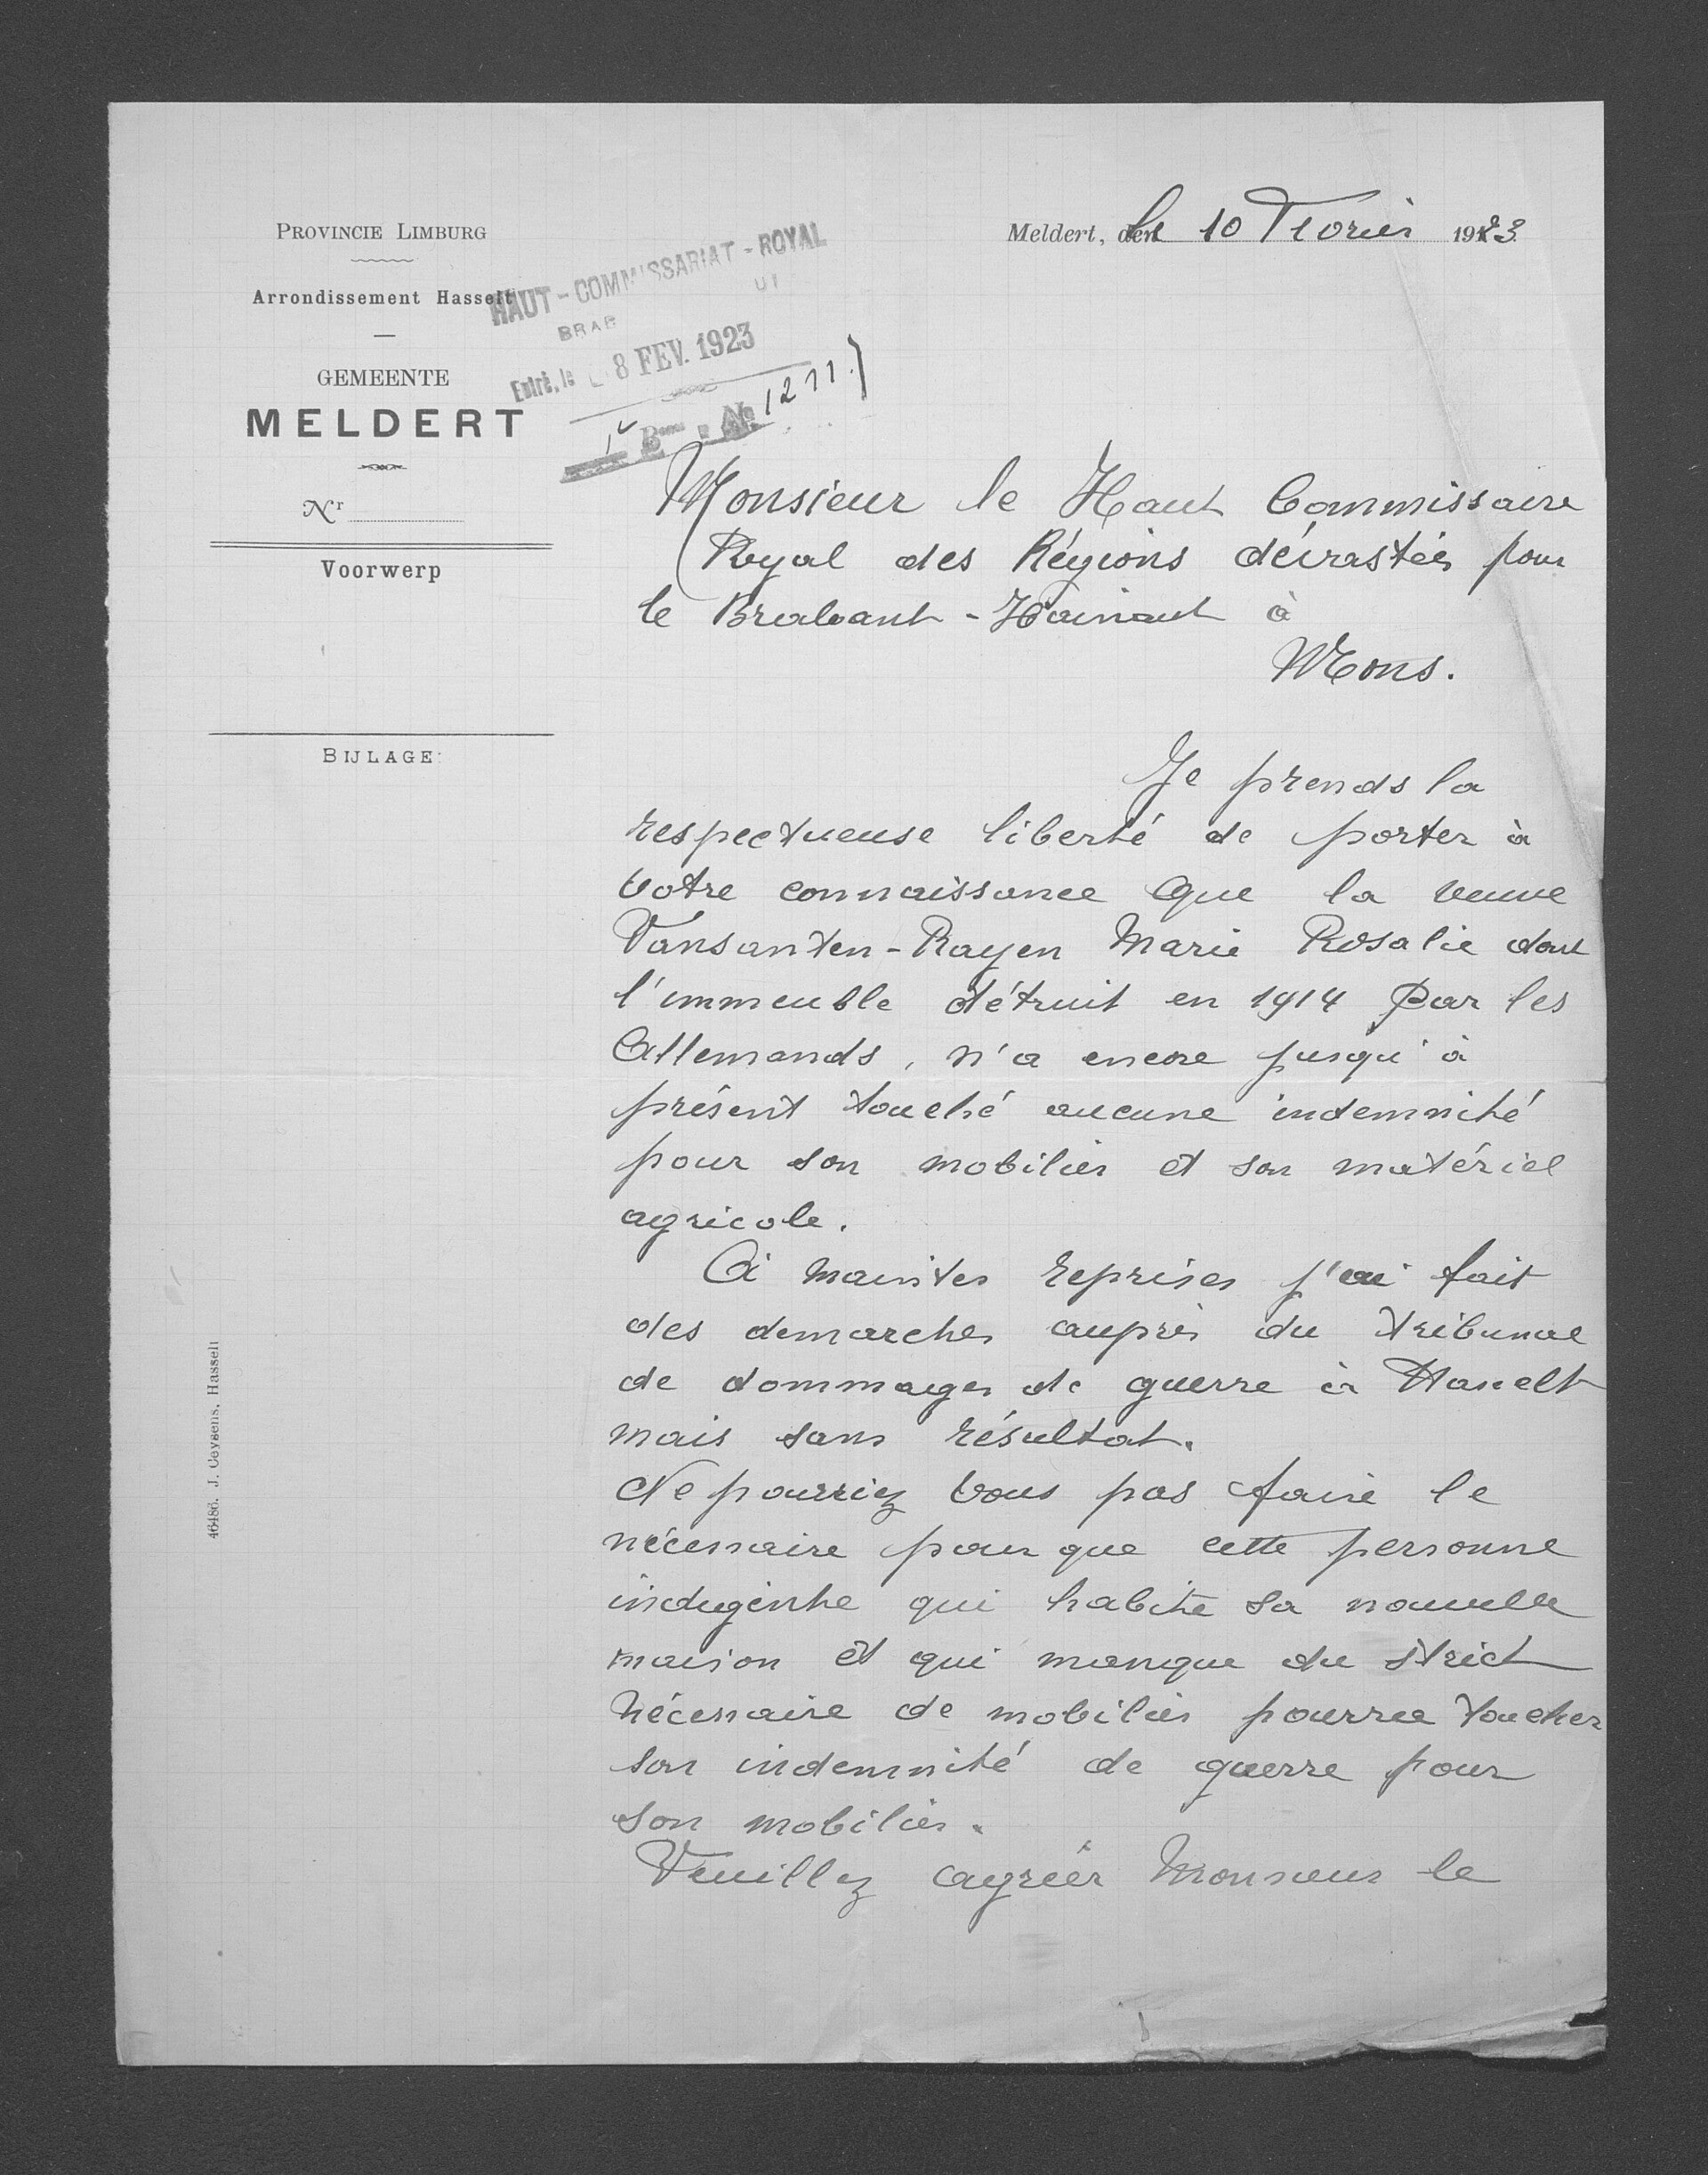 PROVINCIE LIMBURG
Arrondissement Hasselt
GEMEENTE
MELDERT
Nr
Voorwerp
BIJLAGE:
46486. J. Ceysens, Hasselt
HAUT-COMMISSARIAT-ROYAL
BRAB
Entré, le 8 FEV. 1923
No 1211
Meldert, den le 10 Fevrier 1923
Monsieur le Haut Commissaire
Royal des Régions dévastées pour
le Brabant-Hainaut à
Mons.
Je prends la
respectueuse liberté de porter à
votre connaissance que la veuve
Vansanten-Rayen Marie Rosalie dont
l'immeuble détruit en 1914 par les
Allemands, n'a encore jusqu'à
présent touché aucune indemnité
pour son mobilier et son matériel
agricole.
A maintes reprises j'ai fait
des demarches auprès du tribunal
de dommages de guerre à Hasselt
mais sans résultat.
Ne pourriez vous pas faire le
nécessaire pour que cette personne
indugente qui habite sa nouvelle
maison et qui manque du strict
nécessaire de mobilier pourra toucher
son indemnité de guerre pour
son mobilier.
Veuillez agréer Monsieur le